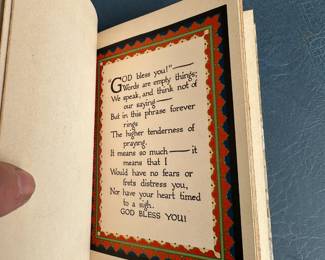 "GOD bless you!"—
Words are empty things;
We speak, and think not of
our saying—
But in this phrase forever
rings
The higher tenderness of
praying.
It means so much—it
means that I
Would have no fears or
frets distress you,
Nor have your heart timed
to a sigh.
GOD BLESS YOU!